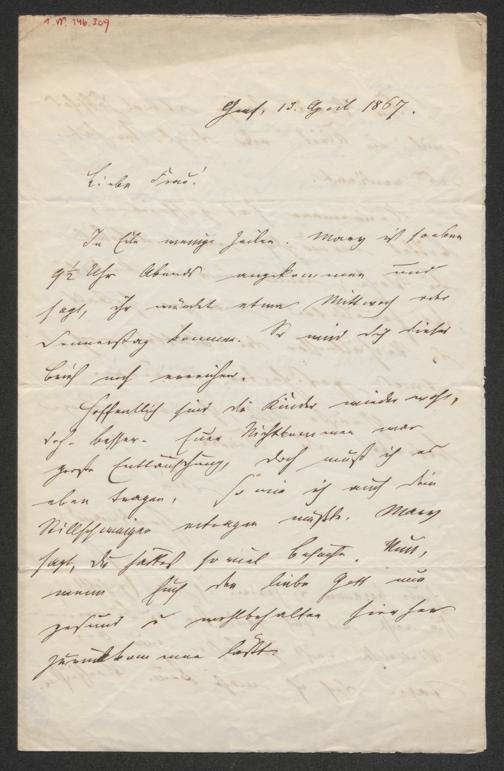 I.N. 146.309
Graz, 13. April 1867.
Liebe Frau!
In Eile wenige Zeilen. Mary ist soeben
9½ Uhr Abends angekommen und
sagt, ihr würdet etwa Mittwoch oder
Donnerstag kommen. So wird dich dieser
Brief noch erreichen.
Hoffentlich sind die Kinder wieder wohl,
doch besser. Euer Nichtkommen war
große Enttäuschung, doch mußt ich es
eben tragen, so wie ich auch dein
Stillschweigen ertragen mußte. Mary
sagt, du hattest so viel Besuche. Nun,
wenn Euch der liebe Gott nur
gesund u wohlbehalten hierher
zurückkommen läßt.